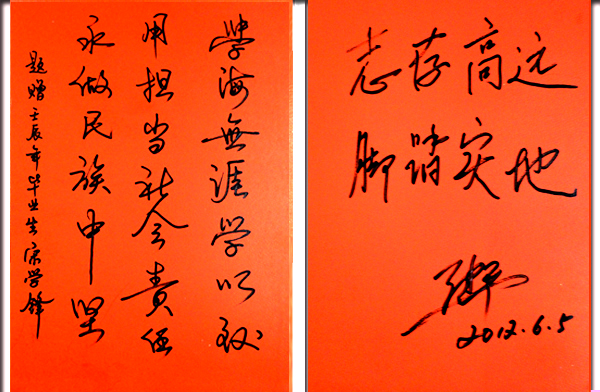 學海無涯学以致
用担当社会責任
永做民族中坚
题赠壬辰年毕业生 宋学锋
志存高远
脚踏实地
2012.6.5